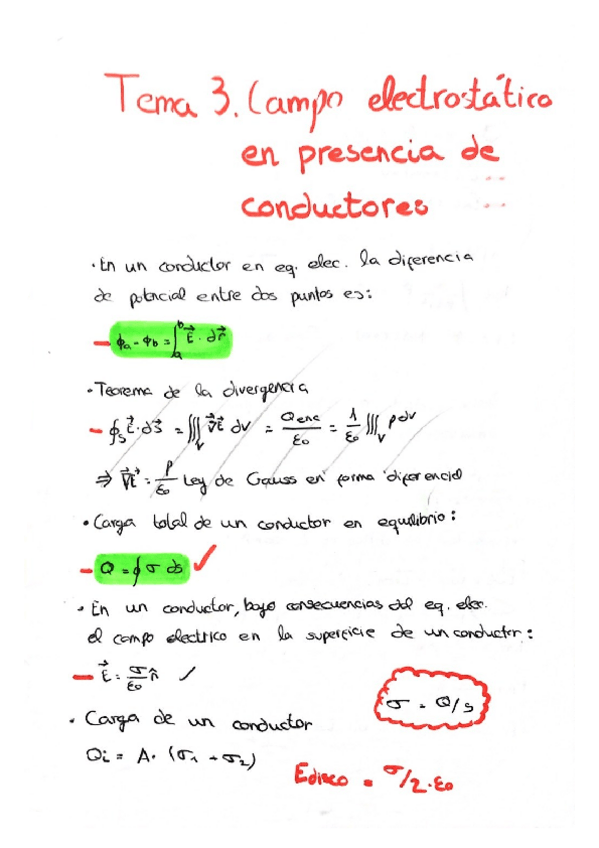 Tema 3. Campo electrostático
en presencia de
conductores
· En un conductor en eq. elec. la diferencia
de potncial entre dos puntos es:
– ϕa - ϕb = ∫_a^b E⃗ · dr⃗
· Teorema de la divergencia
– ∮_S E⃗ · dS⃗ = ∭_V ∇⃗E⃗ dv = Qenc/ε₀ = 1/ε₀ ∭_V ρdv
⇒ ∇⃗E⃗ = ρ/ε₀ Ley de Gauss en forma diferencial
· Carga total de un conductor en equilibrio:
– Q = ∮ σ ds ✓
· En un conductor, bajo consecuencias del eq. elec.
el campo electrico en la superficie de un conductor:
– E⃗ = σ/ε₀ n̂ ✓
σ = Q/s
· Carga de un conductor
Qi = A· (σ₁ + σ₂)
Edisco = σ/2·ε₀